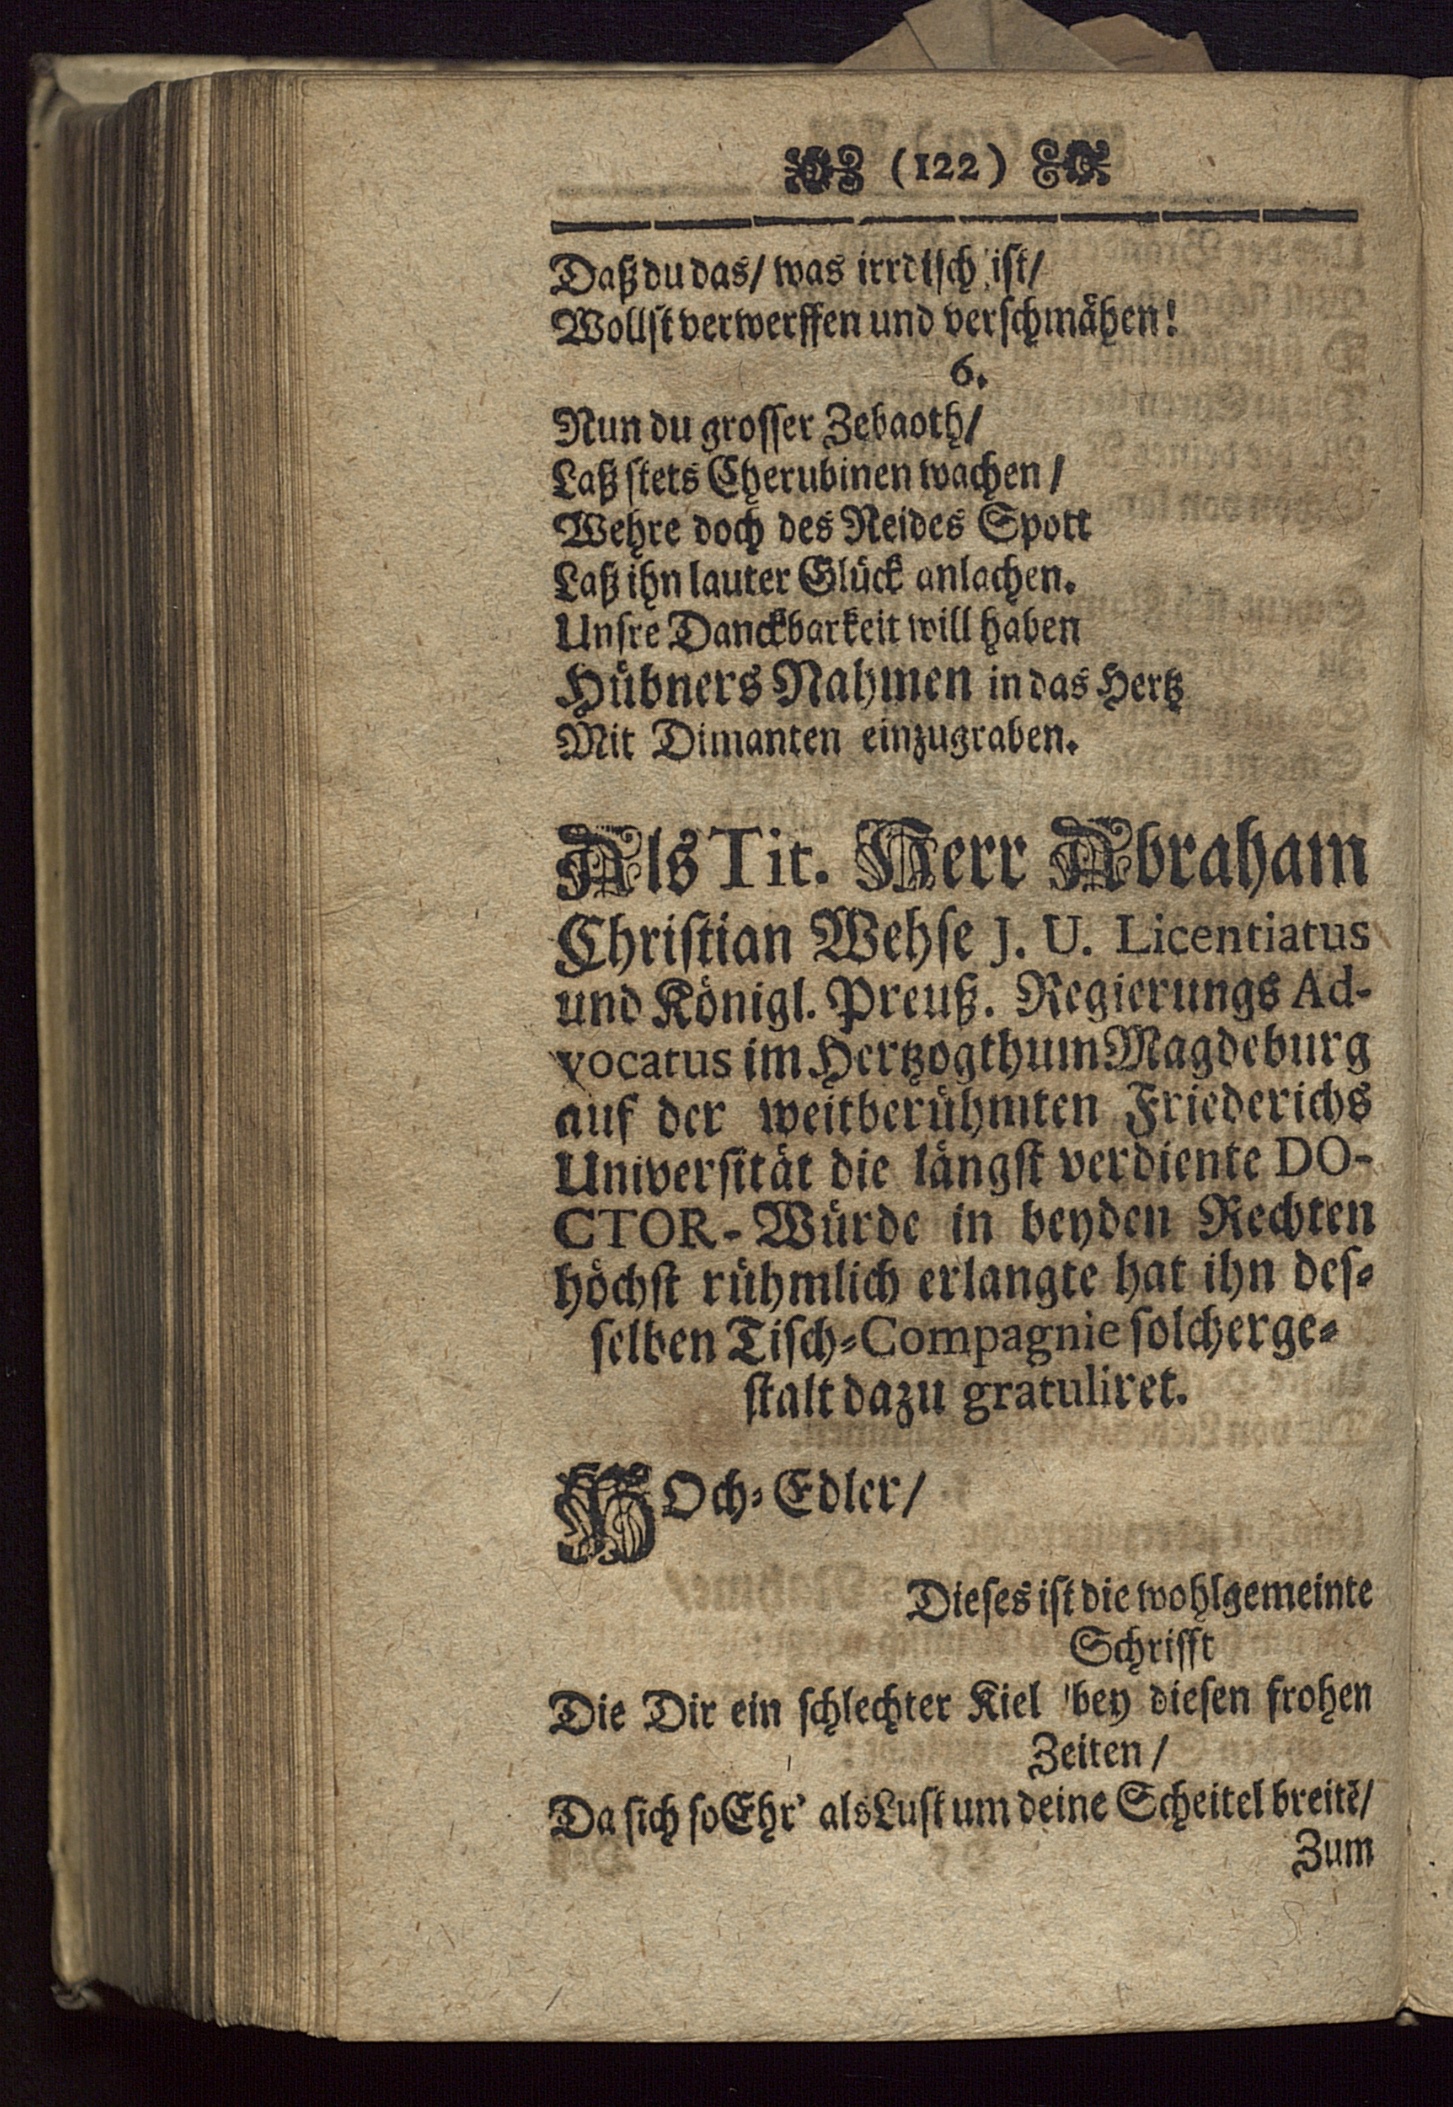 (122)
Daß du das/ was irrdisch ist/
Wollst verwerffen und verschmähen!
6.
Nun du grosser Zebaoth/
Laß stets Cherubinen wachen/
Wehre doch des Neides Spott
Laß ihn lauter Glück anlachen.
Unsre Danckbarkeit will haben
Hübners Nahmen in das Hertz
Mit Dimanten einzugraben.
Als Tit. Herr Abraham
Christian Wehse J. U. Licentiatus
und Königl. Preuß. Regierungs Ad-
vocatus im Hertzogthum Magdeburg
auf der weitberühmten Friederichs
Universität die längst verdiente DO-
CTOR-Würde in beyden Rechten
höchst rühmlich erlangte hat ihn des-
selben Tisch-Compagnie solcherge-
stalt dazu gratuliret.
HOch-Edler/
Dieses ist die wohlgemeinte
Schrifft
Die Dir ein schlechter Kiel bey diesen frohen
Zeiten/
Da sich so Ehr' als Lust um deine Scheitel breitē/
Zum